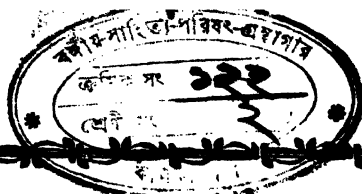 বঙ্গীয়-সাহিত্য-পরিষৎ-গ্রন্থাগার
ক্রমিক সং ১২২
শ্রেণী সং ২